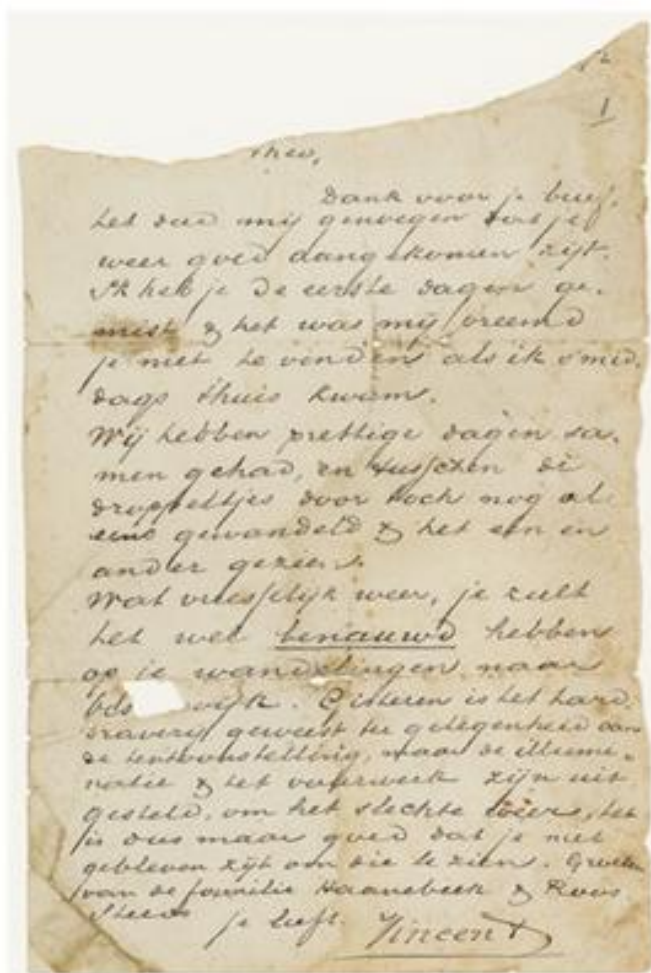 1
Theo,
Dank voor je brief,
het deed mij genoegen dat je
weer goed aangekomen zijt.
Ik heb je de eerste dagen ge-
mist & het was mij vreemd
je niet te vinden als ik s'mid-
dags thuis kwam.
Wij hebben prettige dagen sa-
men gehad, en tusschen de
droppeltjes door toch nog al
eens gewandeld & het een en
ander gezien.
Wat vreesselijk weer, je zult
het wel benauwd hebben
op je wandelingen naar
wijk. Gisteren is het hard-
draverij geweest ter gelegenheid van
de tentoonstelling, maar de illumi-
natie & het vuurwerk zijn uit
gesteld, om het slechte weer, het
is dus maar goed dat je niet
gebleven zijt om die te zien. Groeten
van de familie Haanebeek & Roos.
Steeds
je liefh.
Vincent